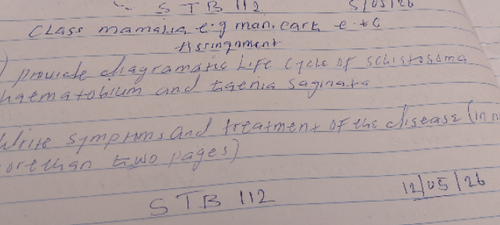 STB 112 5/05/26
Class mamalia e.g man. cark e.t.c
Assingnment
) provide diagramatic Life Cycle of schistosoma
haematobium and Taenia saginata
Write symptoms and treatment of the disease (in n
ore than two pages)
STB 112 12/05/26